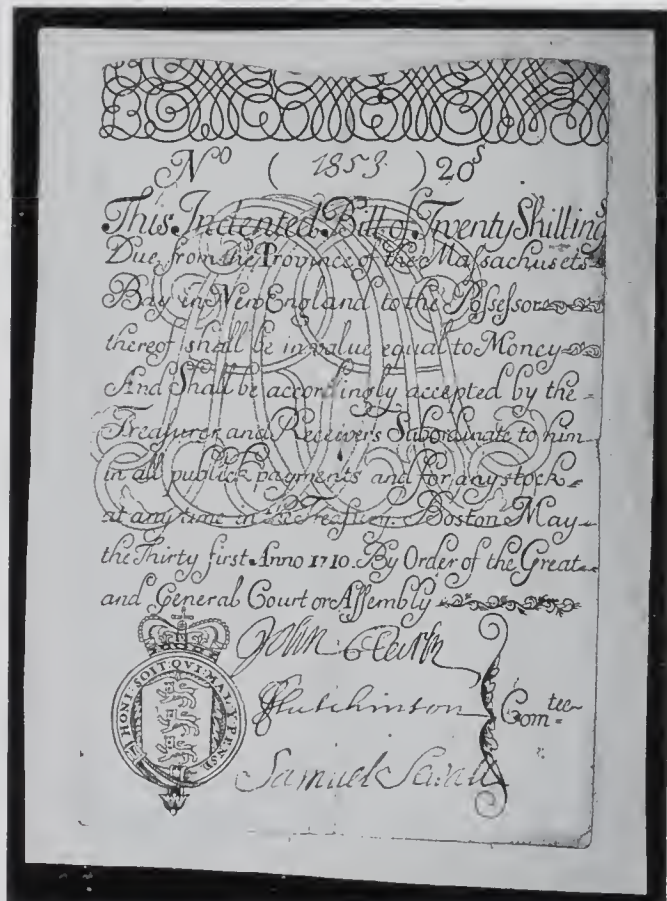 No ( 1853 ) 20s
This Indented Bill of Twenty Shillings
Due from the Province of the Massachusets
Bay in New England to the Possessor
thereof shall be in value equal to Money
And Shall be accordingly accepted by the
Treasurer and Receivers Subordinate to him
in all publick payments and for any stock
at any time in the Treasury. Boston May
the Thirty first Anno 1710. By Order of the Great
and General Court or Assembly
John
Hutchinson
Comtee
Samuel Sewall
HONI·SOIT·QVI·MAL·Y·PENSE